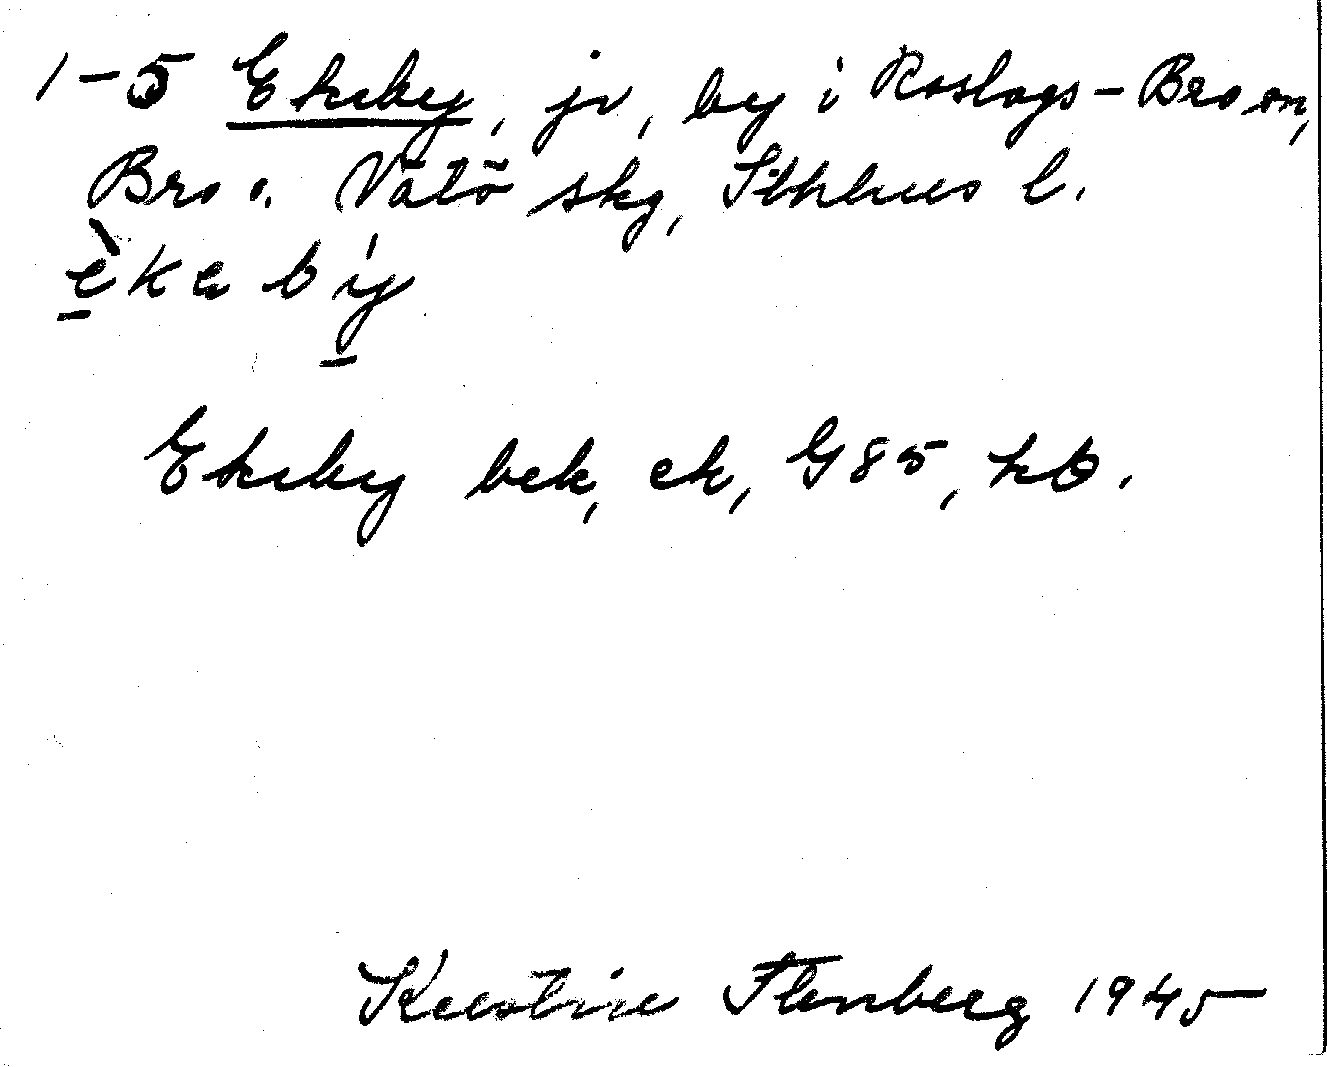 1-5 Ekeby, jv, by i Roslags-Bro sn,
Bro o. Vätö skg, Sthlms l.
è̱ k e b ý̱
Ekeby bek, ek, G85, hb.
Kerstin Flenberg 1945